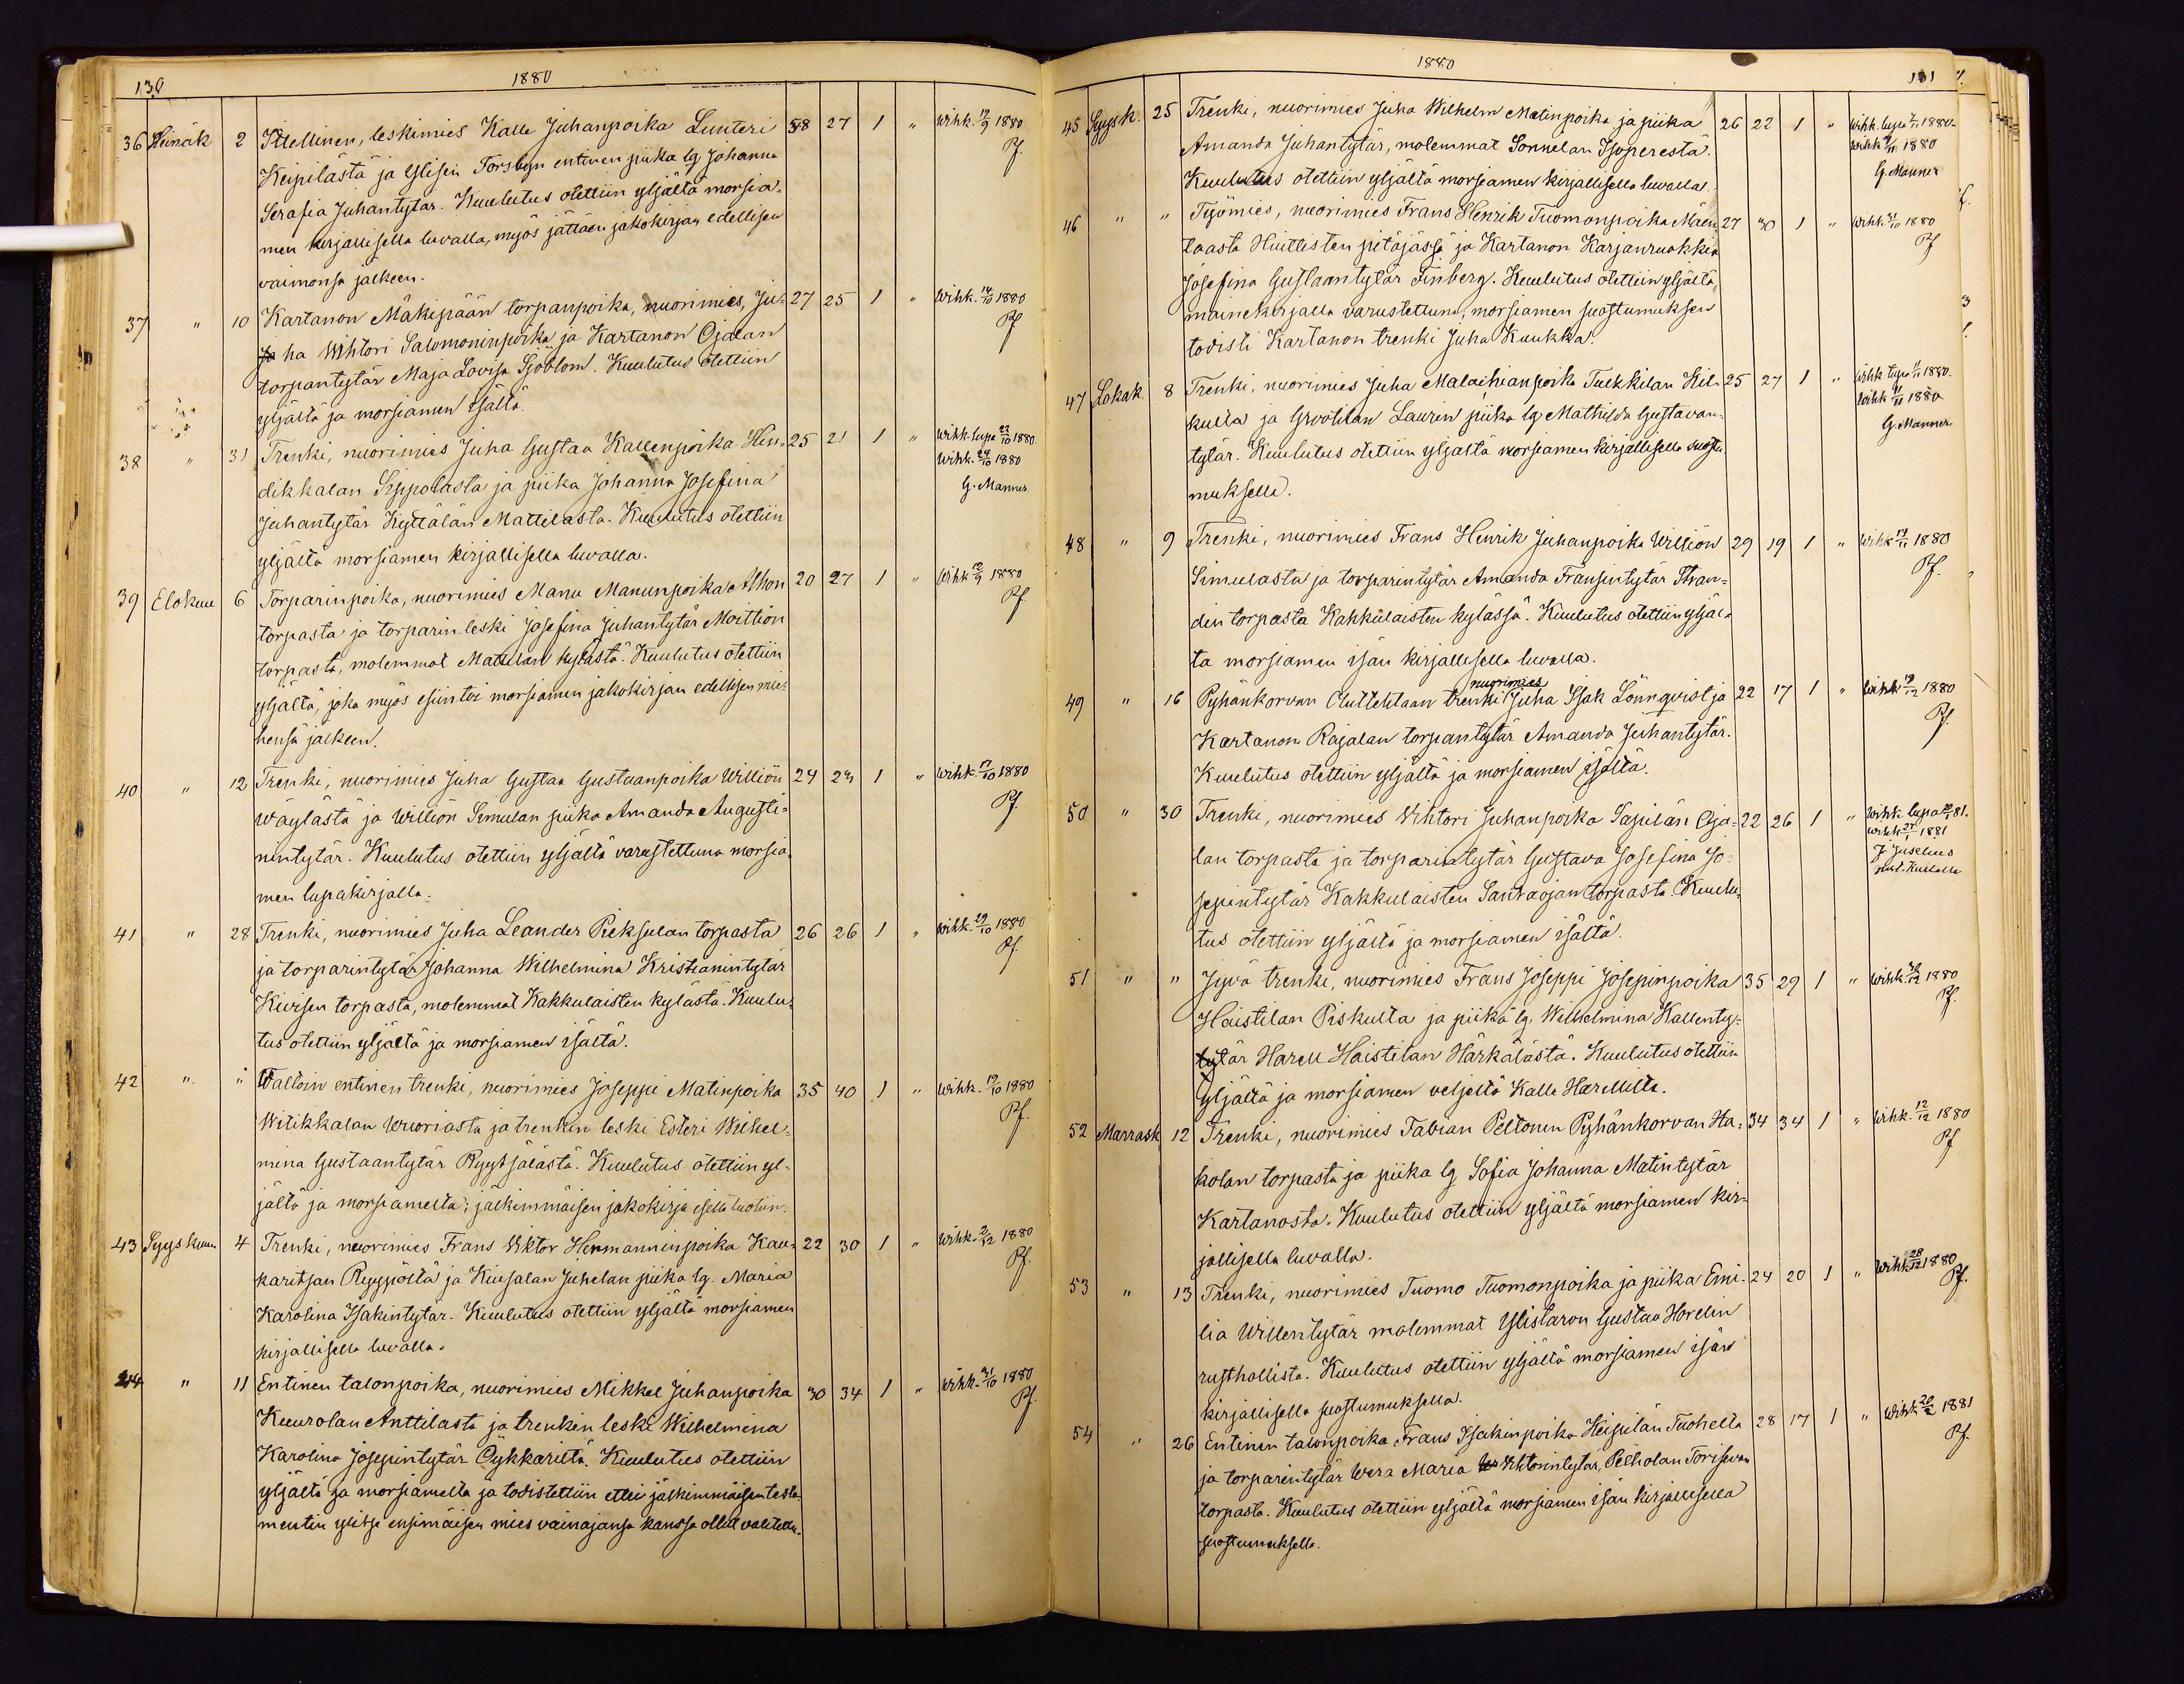 130
1880
36 Heinäk 2 Itellinen, leskimies Kalle Juhanpoika Lunteri 58 27 1 " Wihk. 12/9 1880
Keipilästä ja Ylisen Torsbyn entinen piika lg Johanna Pf.
Serafia Juhantytär. Kuulutus otettiin yljältä morsia-
men kirjallisella luvalla, myös jättäen jakokirjan edellisen
vaimonsa jälkeen.
37 " 10 Kartanon Mäkipään torpanpoika, nuorimies, Ju- 27 25 1 " Wihk. 14/10 1880
ha Wihtori Salomoninpoika ja Kartanon Ojalan Pf
torpantytär Maja Lovisa Sjöblom. Kuulutus otettiin
yljältä ja morsiamen isältä.
38 " 31 Trenki, nuorimies Juha Gustaa Kallenpoika Hin- 25 21 1 " Wihk. lupa 23/10 1880
dikkalan Seppolasta ja piika Johanna Josefina Wihk. 24/10 1880
Juhantytär Kyttälän Mattilasta. Kuulutus otettiin G. Manner
yljältä morsiamen kirjallisella luvalla.
39 Elokuu 6 Torparinpoika, nuorimies Manu Manunpoika Alhon 20 27 1 " Wihk 12/9 1880
torpasta ja torparinleski Josefina Juhantytär Moittion Pf.
torpasta, molemmat Mattilan kylästä. Kuulutus otettiin
yljältä, joka myös esiintoi morsiamen jakokirjan edellisen mie-
hensä jälkeen.
40 " 12 Trenki, nuorimies Juha Gustaa Gustaanpoika Williön 24 23 1 " Wihk. 17/10 1880
Wäylästä ja Williön Simulan piika Amanda Augusti- Pf.
nintytär. Kuulutus otettiin yljältä varustettuna morsia-
men lupakirjalla.
41 " 28 Trenki, nuorimies Juha Leander Pieksulan torpasta 26 26 1 " Wihk. 29/10 1880
ja torparintytär Johanna Wilhelmina Kristianintytär Pf.
Kivisen torpasta, molemmat Kakkulaisten kylästä. Kuulu-
tus otettiin yljältä ja morsiamen isältä.
42 " " Waltoin entinen trenki, nuorimies Joseppi Matinpoika 35 40 1 " Wihk. 19/10 1880
Witikkalan Wuoriasta ja trenkin leski Esteri Wilhel- Pf.
mina Gustaantytär Ryytsälästä. Kuulutus otettiin yl-
jältä ja morsiamelta; jälkimmäisen jakokirja esille tuotiin.
43 Syyskuu 4 Trenki, nuorimies Frans Viktor Hermanninpoika Kau- 22 30 1 " Wihk. 2/12 1880
karitsan Ryypöltä ja Kiusalan Juhelan piika lg. Maria Pf.
Karolina Isakintytär. Kuulutus otettiin yljältä morsiamen
kirjallisella luvalla.
44 " 11 Entinen talonpoika, nuorimies Mikkel Juhanpoika 30 34 1 " Wihk. 31/10 1880
Kuurolan Anttilasta ja trenkin leski Wilhelmina Pf.
Karolina Josepintytär Öykkäriltä. Kuulutus otettiin
yljältä ja morsiamelta ja todistettiin ettei jälkimmäisen testa-
mentin ylitse ensimäisen mies vainajansa kanssa ollut valitettu.
1880
131
45 Syysk. 25 Trenki, nuorimies Juha Wilhelm Matinpoika ja piika 26 22 1 " Wihk. lupa 7/11 1880.
Amanda Juhantytär, molemmat Sonnilan Isoperestä. Wihk 1880
Kuulutus otettiin yljältä morsiamen kirjallisella luvalla. G. Manner
46 " " Työmies, nuorimies Frans Henrik Tuomonpoika Mäen- 27 30 1 " Wihk. 31/10 1880
laasta Huittisten pitäjässä ja Kartanon Karjanruokkia Pf
Josefina Gustaantytär Finberg. Kuulutus otettiin yljältä,
mainekirjalla varustettuna; morsiamen suostumuksen
todisti Kartanon trenki Juha Kuukka.
47 Lokak. 8 Trenki, nuorimies Juha Malachianpoika Tulkkilan Kil- 25 27 1 " Wihk lupa 1880.
kulla ja Grootilan Laurin piika lg Mathilda Gustavan- Wihk 1880
tytär. Kuulutus otettiin yljältä morsiamen kirjallisella suostu- G. Manner
muksella.
48 " 9 Trenki, nuorimies Frans Henrik Juhanpoika Williön 29 19 1 " Wihk 14/11 1880
Simulasta ja torparintytär Amanda Fransintytär Stran- Pf.
din torpasta Kakkulaisten kylässä. Kuulutus otettiin yljäl-
tä morsiamen isän kirjallisella luvalla.
nuorimies
49 " 16 Pyhänkorvan Oluttehtaan trenki Juha Isak Lönnqvist ja 22 17 1 " Wihk 19/12 1880
Kartanon Rajalan torpantytär Amanda Juhantytär. Pf.
Kuulutus otettiin yljältä ja morsiamen isältä.
50 " 30 Trenki, nuorimies Wihtori Juhanpoika Sapilan Oja- 22 26 1 " Wihk lupa 81.
lan torpasta ja torparintytär Gustava Josefina Jo- Wihk 1881
sepintytär Kakkulaisten Santaojan torpasta. Kuulu- J. Juselius
tus otettiin yljältä ja morsiamen isältä.
51 " " Jyvä trenki, nuorimies Frans Joseppi Josepinpoika 35 29 1 " Wihk. 1880
Haistilan Piskulta ja piika lg. Wilhelmina Kallenty- Pf.
tär Harell Haistilan Härkälästä. Kuulutus otettiin
yljältä ja morsiamen veljeltä Kalle Harellilta.
52 Marrask 12 Trenki, nuorimies Fabian Peltonen Pyhänkorvan Ha- 34 34 1 " Wihk. 12/12 1880
kolan torpasta ja piika lg Sofia Johanna Matintytär Pf
Kartanosta. Kuulutus otettiin yljältä morsiamen kir-
jallisella luvalla.
53 " 13 Trenki, nuorimies Tuomo Tuomonpoika ja piika Emi- 24 20 1 " Wihk 28/12 1880
lia Willentytär molemmat Ylistaron Gustaa Horelin Pf.
rusthollista. Kuulutus otettiin yljältä morsiamen isän
kirjallisella suostumuksella.
54 " 26 Entinen talonpoika Frans Isakinpoika Keipilän Tuohella 28 17 1 " Wihk 20/2 1881
ja torparintytär Wera Maria Vihtorintytär, Pelholan Torisevan Pf.
torpasta. Kuulutus otettiin yljältä morsiamen isän kirjallisella
suostumuksella.